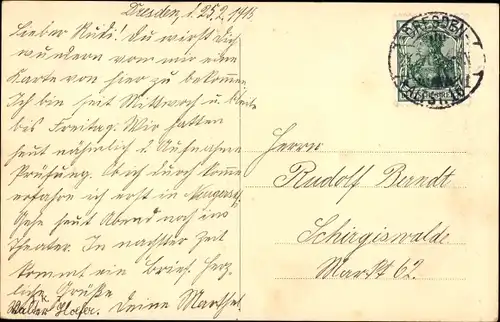 Dresden, d. 25.2.1916
Lieber Rudi! Du wirst dich
wundern von mir eine
Karte von hier zu bekommen.
Ich bin seit Mittwoch u. bleibe
bis Freitag. Wir hatten
heut nähmlich d. Aufnahme
Prüfung. Ob ich durch komme
erfahre ich erst in
Gehe heut Abend noch ins
Theater. In nächster Zeit
kommt ein Brief. Herz-
liche Grüße
Deine
DRESDEN
ALTSTADT
Herrn
Rudolf Berndt
Schirgiswalde
Markt 62.